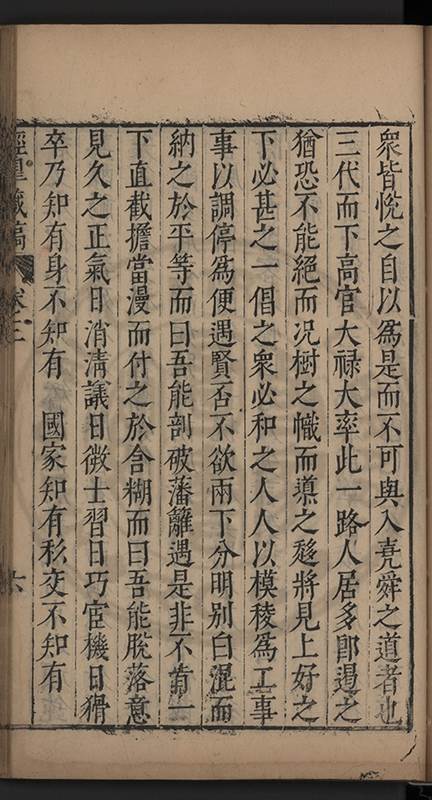 衆皆悅之自以爲是而不可與入堯舜之道者也
三代而下高官大禄大率此一路人居多卽遏之
猶恐不能絕而況樹之幟而導之趍將見上好之
下必甚之一倡之衆必和之人人以模稜爲工事
事以調停爲便遇賢否不欲兩下分明别白混而
納之於平等而曰吾能剖破藩籬遇是非不肯一
下直截擔當漫而付之於含糊而曰吾能脫落意
見久之正氣日消淸議日微士習日巧宦機日猾
卒乃知有身不知有　國家知有私交不知有
經臯藏稿　卷二　六